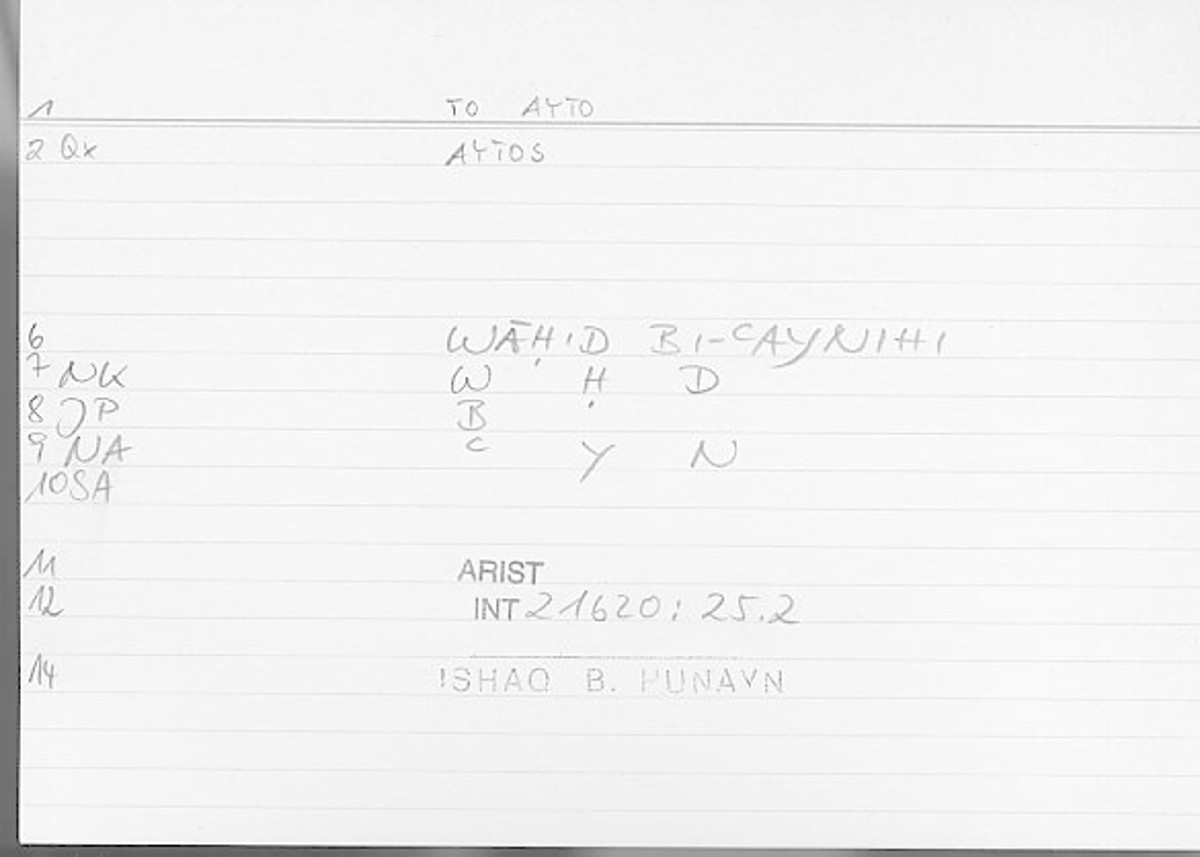 1 TO AYTO
2 Qx AYTOS
6 WĀḤID BI-CAYNIHI
7 NK W Ḥ D
8 JP B
9 NA C Y N
10 SA
11 ARIST
12 INT 21620: 25.2
14 ISHAQ B. HUNAYN